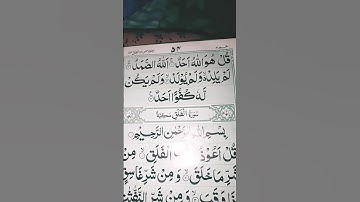 ٥٤
قُلْ هُوَ اللّٰهُ اَحَدٌ ۚ اَللّٰهُ الصَّمَدُ ۚ
لَمْ يَلِدْ ۙ وَلَمْ يُوْلَدْ ۙ وَلَمْ يَكُنْ
لَّهٗ كُفُوًا اَحَدٌ
سُوْرَةُ الْفَلَقِ مَكِّيَّةٌ
بِسْمِ اللّٰهِ الرَّحْمٰنِ الرَّحِيْمِ
قُلْ اَعُوْذُ الْفَلَقِ ۙ مِنْ
شَرِّ مَا خَلَقَ ۙ وَمِنْ شَرِّ غَاسِقٍ
وَقَبَ ۙ وَمِنْ شَرِّ النَّفّٰثٰتِ